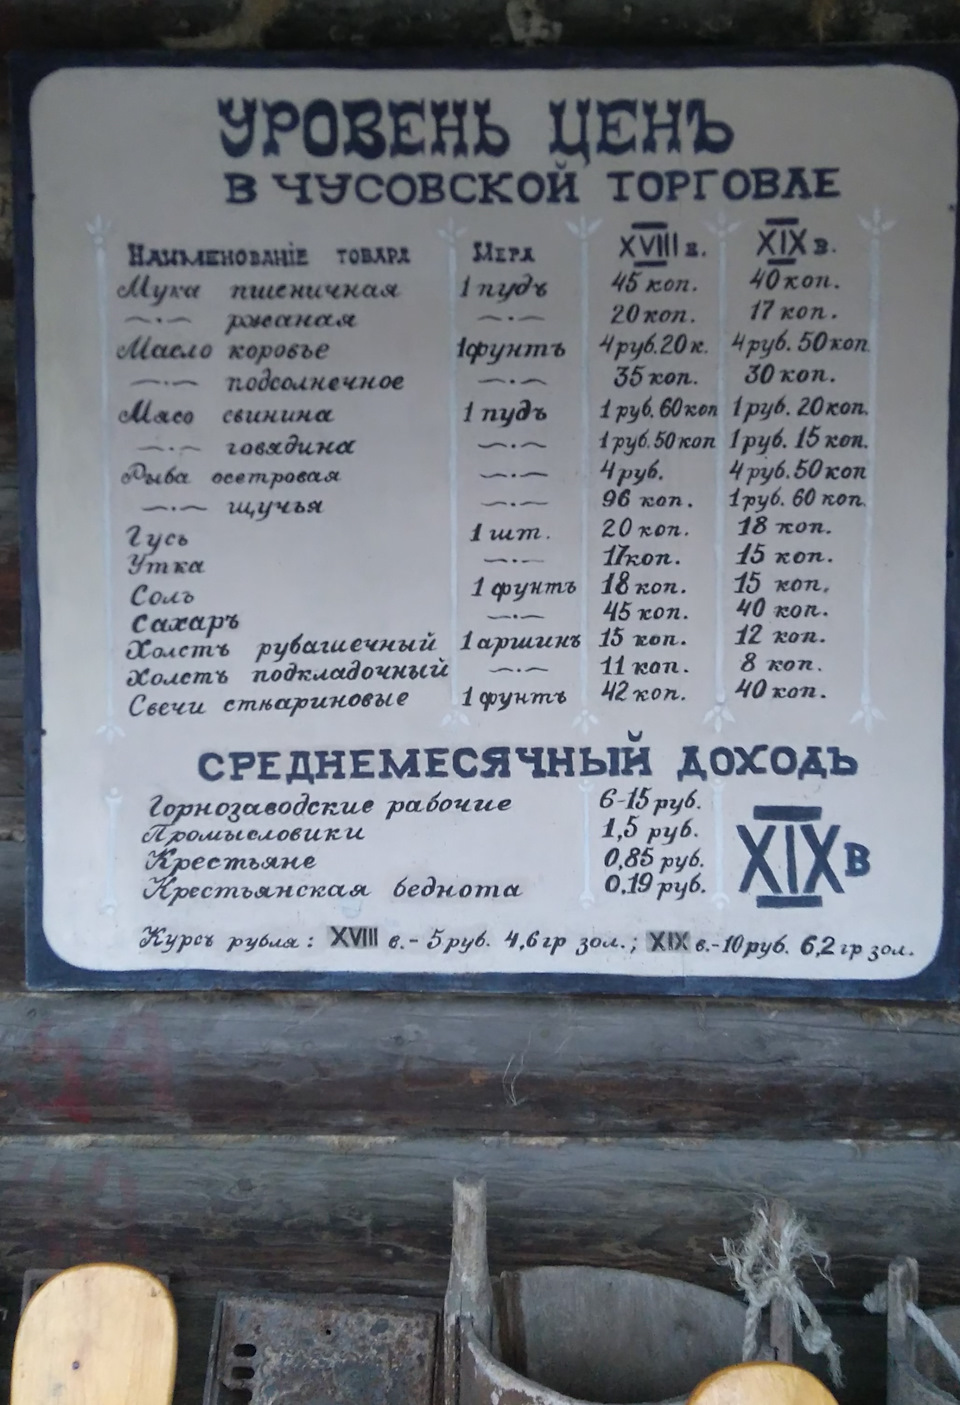 УРОВЕНЬ ЦЕНЪ
В ЧУСОВСКОЙ ТОРГОВЛЕ
НАИМЕНОВАНІЕ ТОВАРА МЕРА XVIII в. XIX в.
Мука пшеничная 1 пудъ 45 коп. 40 коп.
—·— ржаная —·— 20 коп. 17 коп.
Масло коровье 1 фунтъ 4 руб. 20 к. 4 руб. 50 коп.
—·— подсолнечное —·— 35 коп. 30 коп.
Мясо свинина 1 пудъ 1 руб. 60 коп 1 руб. 20 коп.
—·— говядина —·— 1 руб. 50 коп 1 руб. 15 коп.
Рыба осетровая —·— 4 руб. 4 руб. 50 коп
—·— щучья —·— 96 коп. 1 руб. 60 коп.
Гусь 1 шт. 20 коп. 18 коп.
Утка —·— 17 коп. 15 коп.
Соль 1 фунтъ 18 коп. 15 коп.
Сахаръ —·— 45 коп. 40 коп.
Холстъ рубашечный 1 аршинъ 15 коп. 12 коп.
Холстъ подкладочный —·— 11 коп. 8 коп.
Свечи стѣариновые 1 фунтъ 42 коп. 40 коп.
СРЕДНЕМЕСЯЧНЫЙ ДОХОДЬ
Горнозаводские рабочие 6-15 руб.
Промысловики 1,5 руб.
Крестьяне 0,85 руб.
Крестьянская беднота 0,19 руб.
XIX в
Курсъ рубля: XVIII в. - 5 руб. 4,6 гр зол.; XIX в. - 10 руб. 6,2 гр зол.